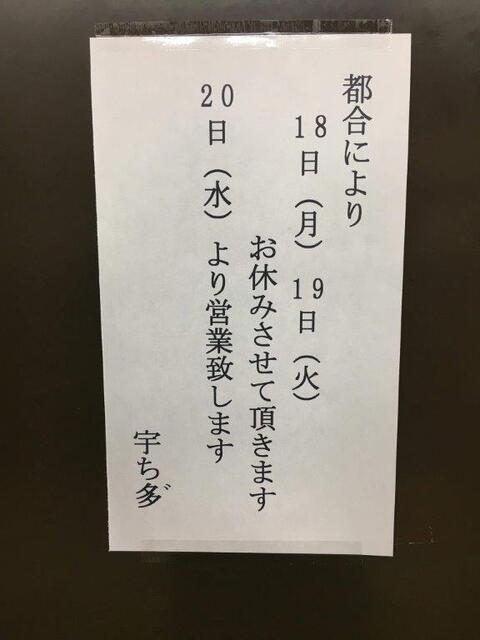 都合により
18日（月）19日（火）
お休みさせて頂きます
20日（水）より営業致します
宇ち多゛